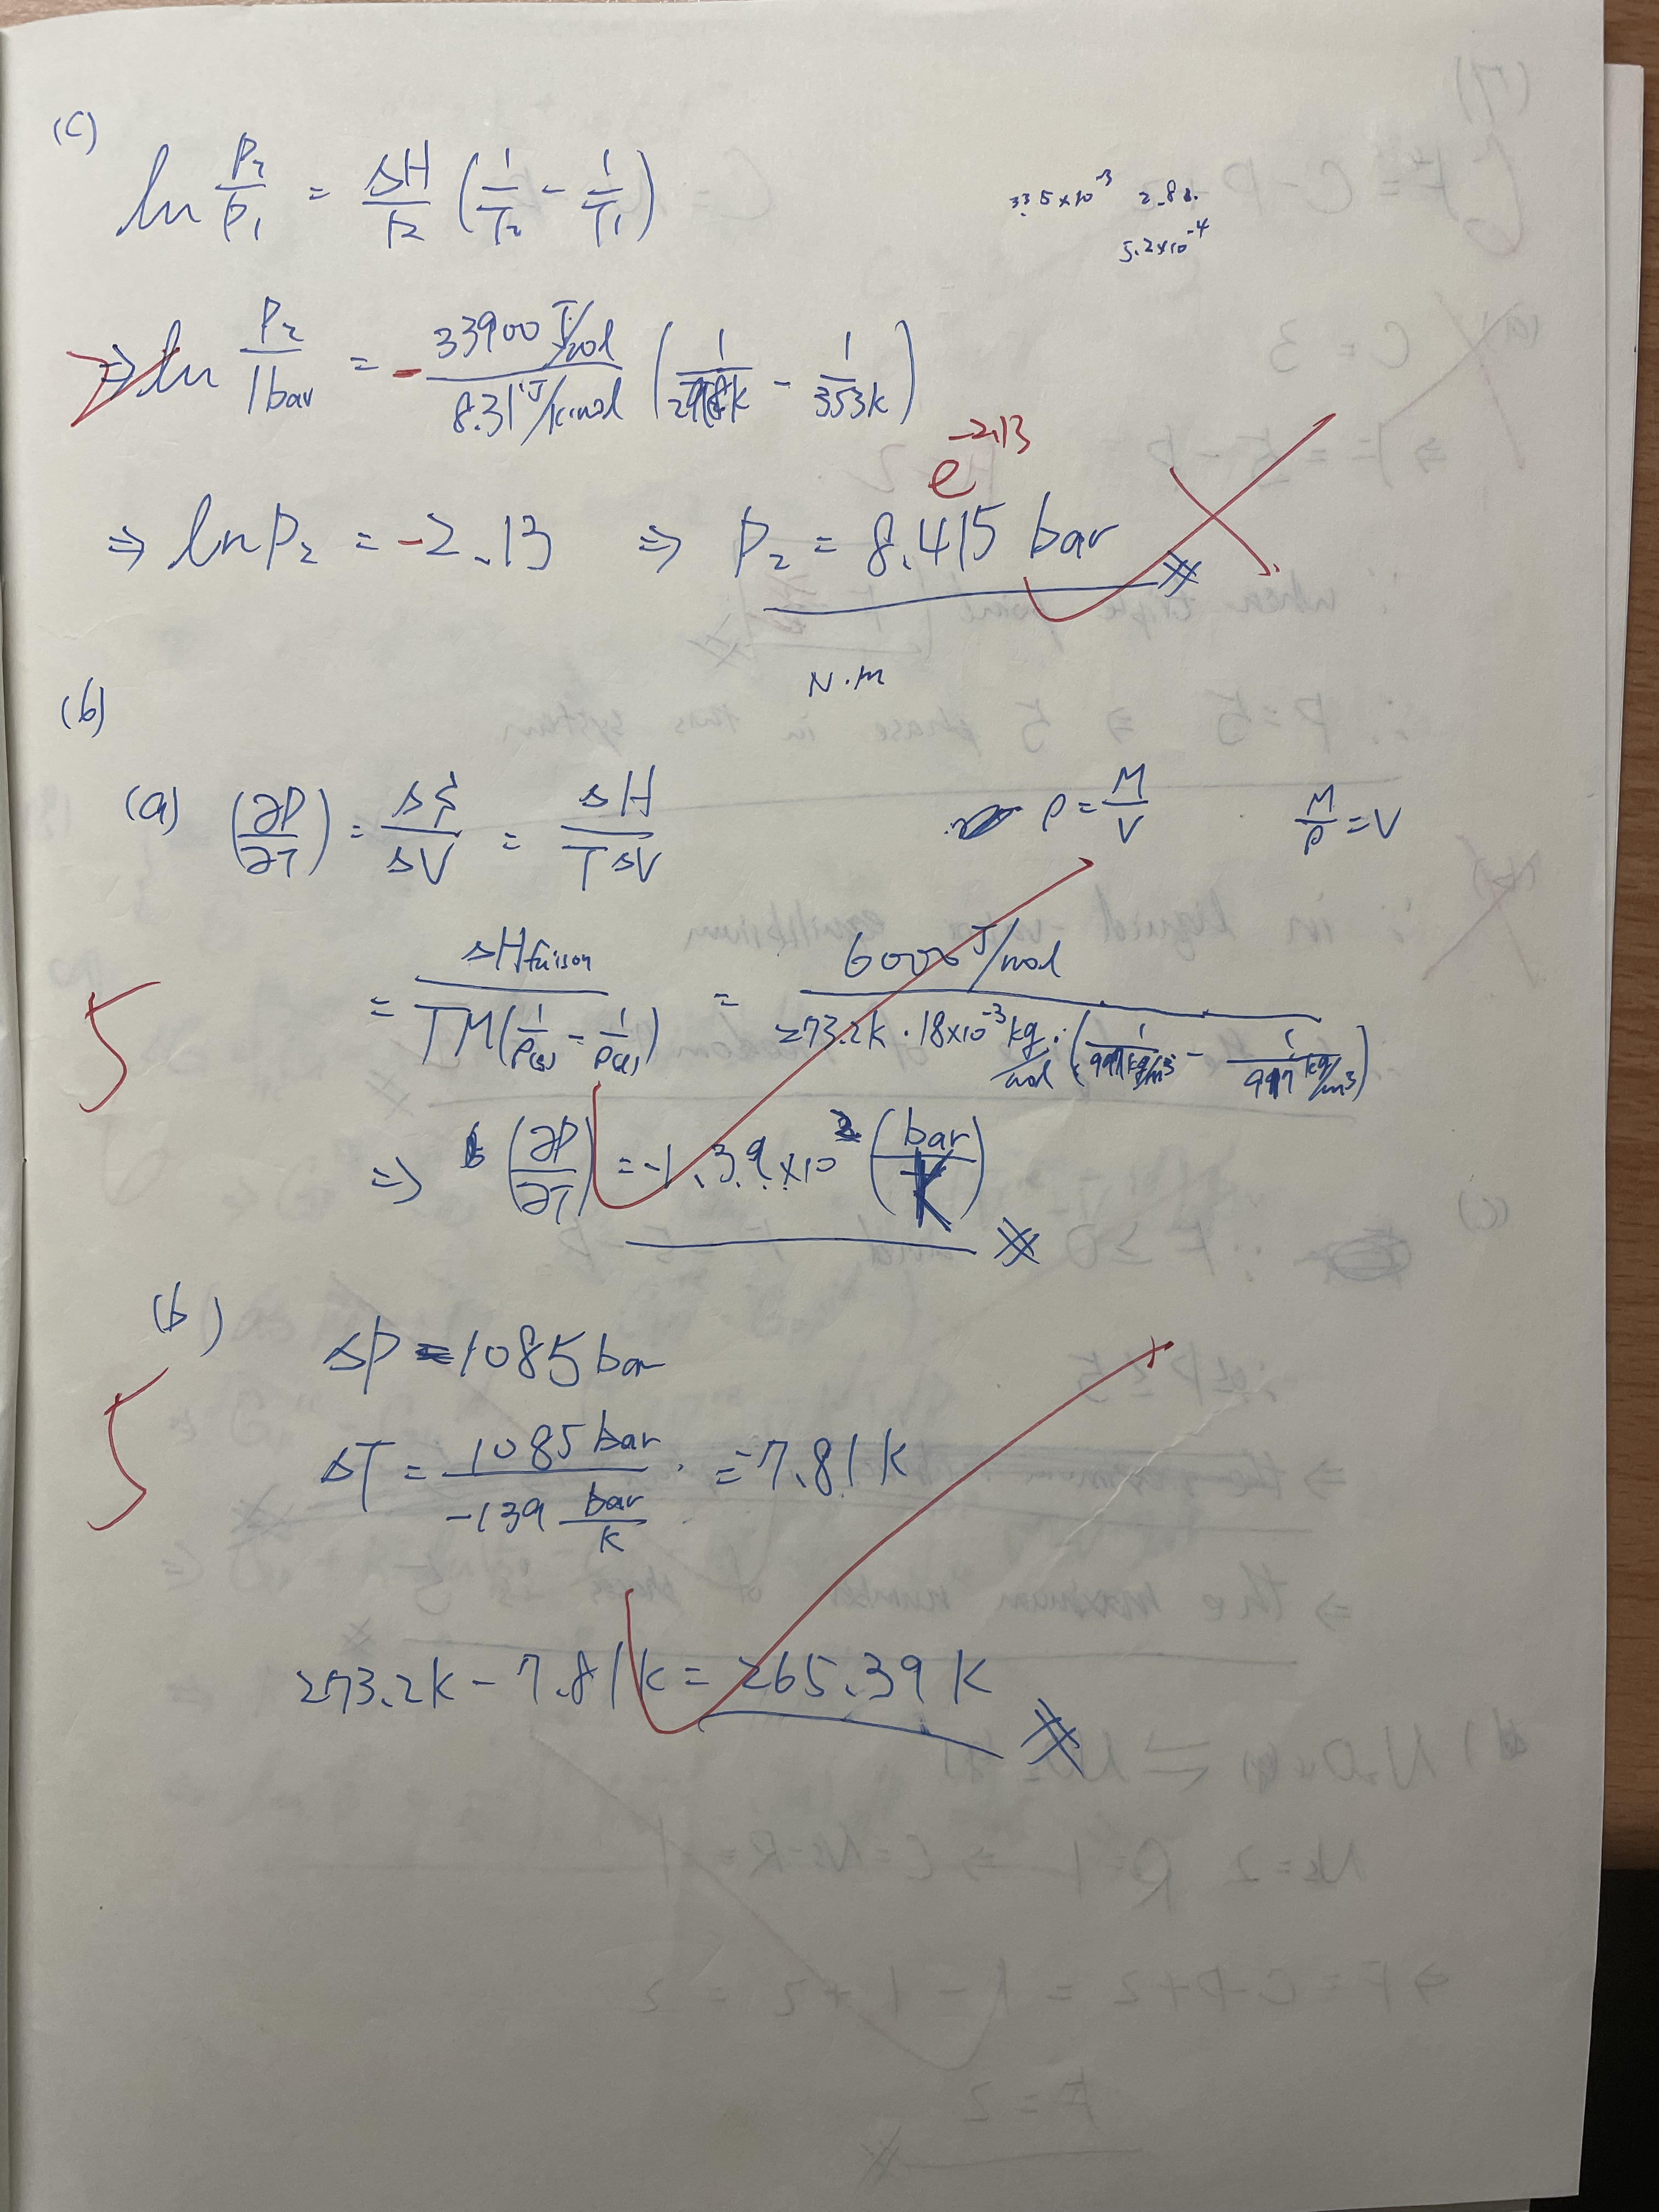 (c)
ln P₂/P₁ = ΔH/R (1/T₂ - 1/T₁)
33.5×10⁻³ 2.88.
5.2×10⁻⁴
⇒ ln P₂/1bar = - 33900 J/mol / 8.31 J/k·mol (1/298k - 1/353k)
e^-2.13
⇒ ln P₂ = -2.13 ⇒ P₂ = 8.415 bar
N·m
(b)
(a) (∂P/∂T) = ΔS/ΔV = ΔH/TΔV
ρ = M/V M/ρ = V
5
= ΔHfuison / TM(1/ρ(l) - 1/ρ(s)) = 6000 J/mol / 273.2k · 18×10⁻³ kg/mol · (1/997kg/m³ - 1/917kg/m³)
⇒ (∂P/∂T) = -1.39×10² (bar/K)
(b)
ΔP = 1085 bar
5
ΔT = 1085 bar / -139 bar/k = -7.81 k
273.2k - 7.81k = 265.39 k